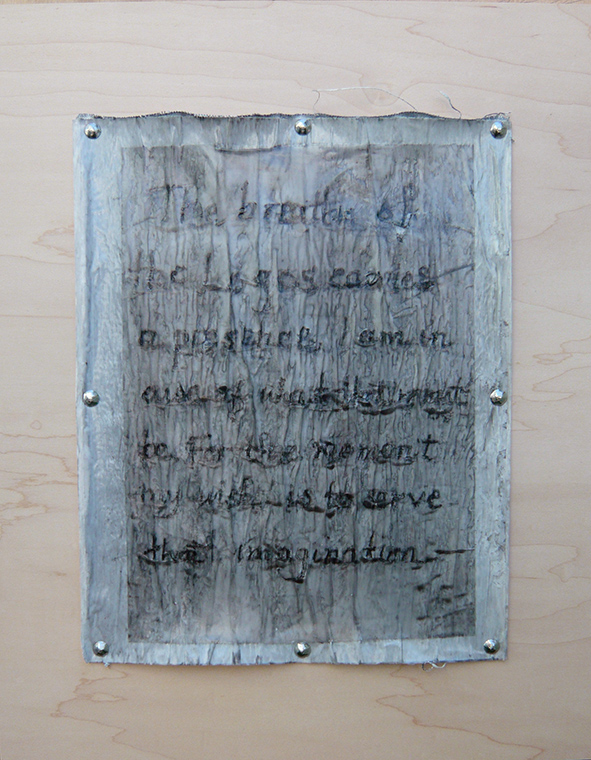 The breath of
the Logos carries
a presence. I am in
awe of what that might
be. For the moment
my wish is to serve
that imagination.—